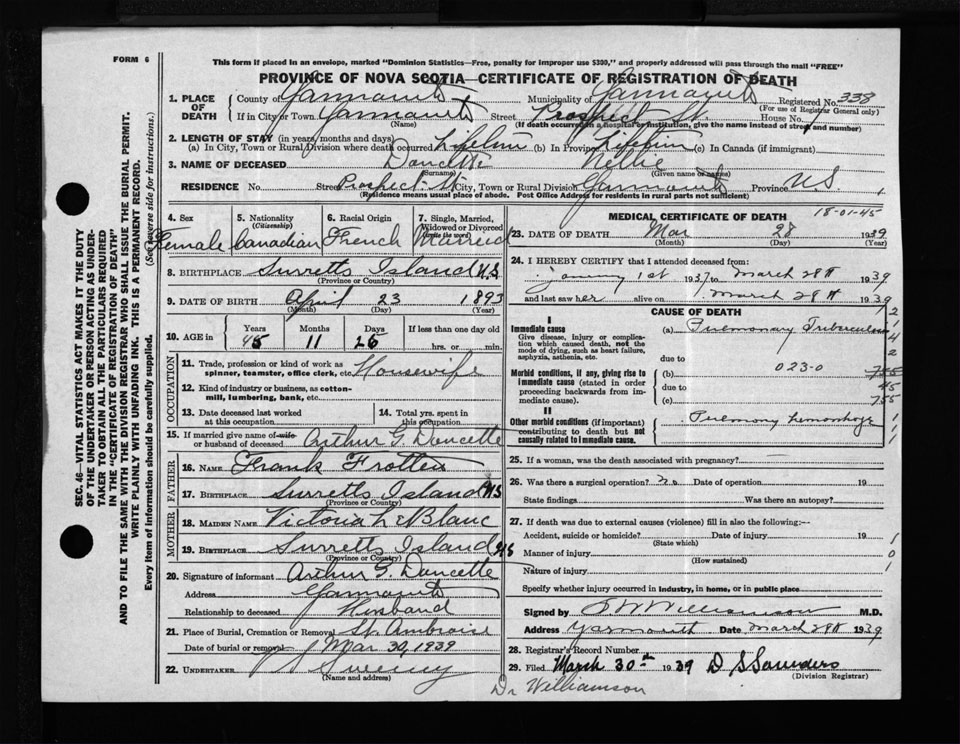 FORM 6
This form if placed in an envelope, marked "Dominion Statistics—Free, penalty for improper use $300," and properly addressed will pass through the mail "FREE"
PROVINCE OF NOVA SCOTIA—CERTIFICATE OF REGISTRATION OF DEATH
1. PLACE OF DEATH
County of Yarmouth Municipality of Yarmouth Registered No. 338
(For use of Registrar General only)
If in City or Town Yarmouth Street Prospect St. House No.
(Name) (If death occurred in a hospital or institution, give the name instead of street and number)
2. LENGTH OF STAY (in years, months and days)
(a) In City, Town or Rural Division where death occurred Lifetime (b) In Province Lifetime (c) In Canada (if immigrant)
3. NAME OF DECEASED Doucette Nellie
(Surname) (Given name or names)
RESIDENCE No. Street Prospect St City, Town or Rural Division Yarmouth Province N.S.
(Residence means usual place of abode. Post Office Address for residents in rural parts not sufficient)
4. Sex 5. Nationality 6. Racial Origin 7. Single, Married, Widowed or Divorced
(Citizenship) (write the word)
Female Canadian French Married
8. BIRTHPLACE Surretts Island N.S.
(Province or Country)
9. DATE OF BIRTH April 23 1893
(Month) (Day) (Year)
10. AGE in Years Months Days If less than one day old
45 11 25 hrs. or min.
OCCUPATION
11. Trade, profession or kind of work as spinner, teamster, office clerk, etc. Housewife
12. Kind of industry or business, as cotton-mill, lumbering, bank, etc.
13. Date deceased last worked at this occupation
14. Total yrs. spent in this occupation
15. If married give name of wife or husband of deceased Arthur G Doucette
FATHER
16. NAME Frank Frotten
17. BIRTHPLACE Surretts Island N.S
(Province or Country)
MOTHER
18. MAIDEN NAME Victoria LeBlanc
19. BIRTHPLACE Surretts Island N.S
(Province or Country)
20. Signature of informant Arthur G. Doucette
Address Yarmouth
Relationship to deceased Husband
21. Place of Burial, Cremation or Removal St. Ambroise
Date of burial or removal Mar 30, 1939
22. UNDERTAKER Sweeny
(Name and address)
MEDICAL CERTIFICATE OF DEATH
18-01-45
23. DATE OF DEATH Mar 28 1939
(Month) (Day) (Year)
24. I HEREBY CERTIFY that I attended deceased from:
January 1st 1937 to March 28th 1939
and last saw her alive on March 28th 1939
CAUSE OF DEATH
I
Immediate cause (a) Pulmonary Tuberculosis
Give disease, injury or complication which caused death, not the mode of dying, such as heart failure, asphyxia, asthenia, etc.
due to
Morbid conditions, if any, giving rise to immediate cause (stated in order proceeding backwards from immediate cause).
(b) 023-0
due to
(c)
II
Other morbid conditions (if important) contributing to death but not causally related to immediate cause.
Pulmonary hemorrhage
25. If a woman, was the death associated with pregnancy? —
26. Was there a surgical operation? no Date of operation 19
State findings Was there an autopsy?
27. If death was due to external causes (violence) fill in also the following:—
Accident, suicide or homicide? Date of injury 19
(State which)
Manner of injury
(How sustained)
Nature of injury
Specify whether injury occurred in industry, in home, or in public place
Signed by Williamson M.D.
Address Yarmouth Date March 28th 1939
28. Registrar's Record Number
29. Filed March 30th 1939 D S Saunders
(Division Registrar)
Dr Williamson
SEC. 46—VITAL STATISTICS ACT MAKES IT THE DUTY
OF THE UNDERTAKER OR PERSON ACTING AS UNDER-
TAKER TO OBTAIN ALL THE PARTICULARS REQUIRED
IN THE "CERTIFICATE OF REGISTRATION OF DEATH"
AND TO FILE THE SAME WITH THE DIVISION REGISTRAR WHO SHALL ISSUE THE BURIAL PERMIT.
WRITE PLAINLY WITH UNFADING INK. THIS IS A PERMANENT RECORD.
Every item of information should be carefully supplied. (See reverse side for instructions.)